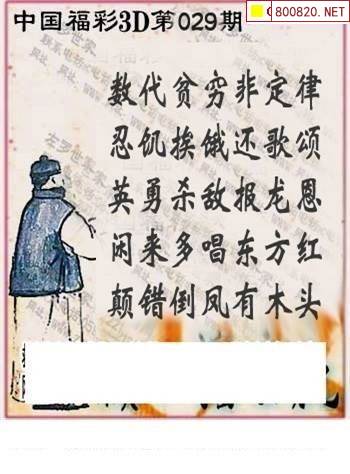 中国福彩3D第029期
800820.NET
数代贫穷非定律
忍饥挨饿还歌颂
英勇杀敌报龙恩
闲来多唱东方红
颠错倒凤有木头